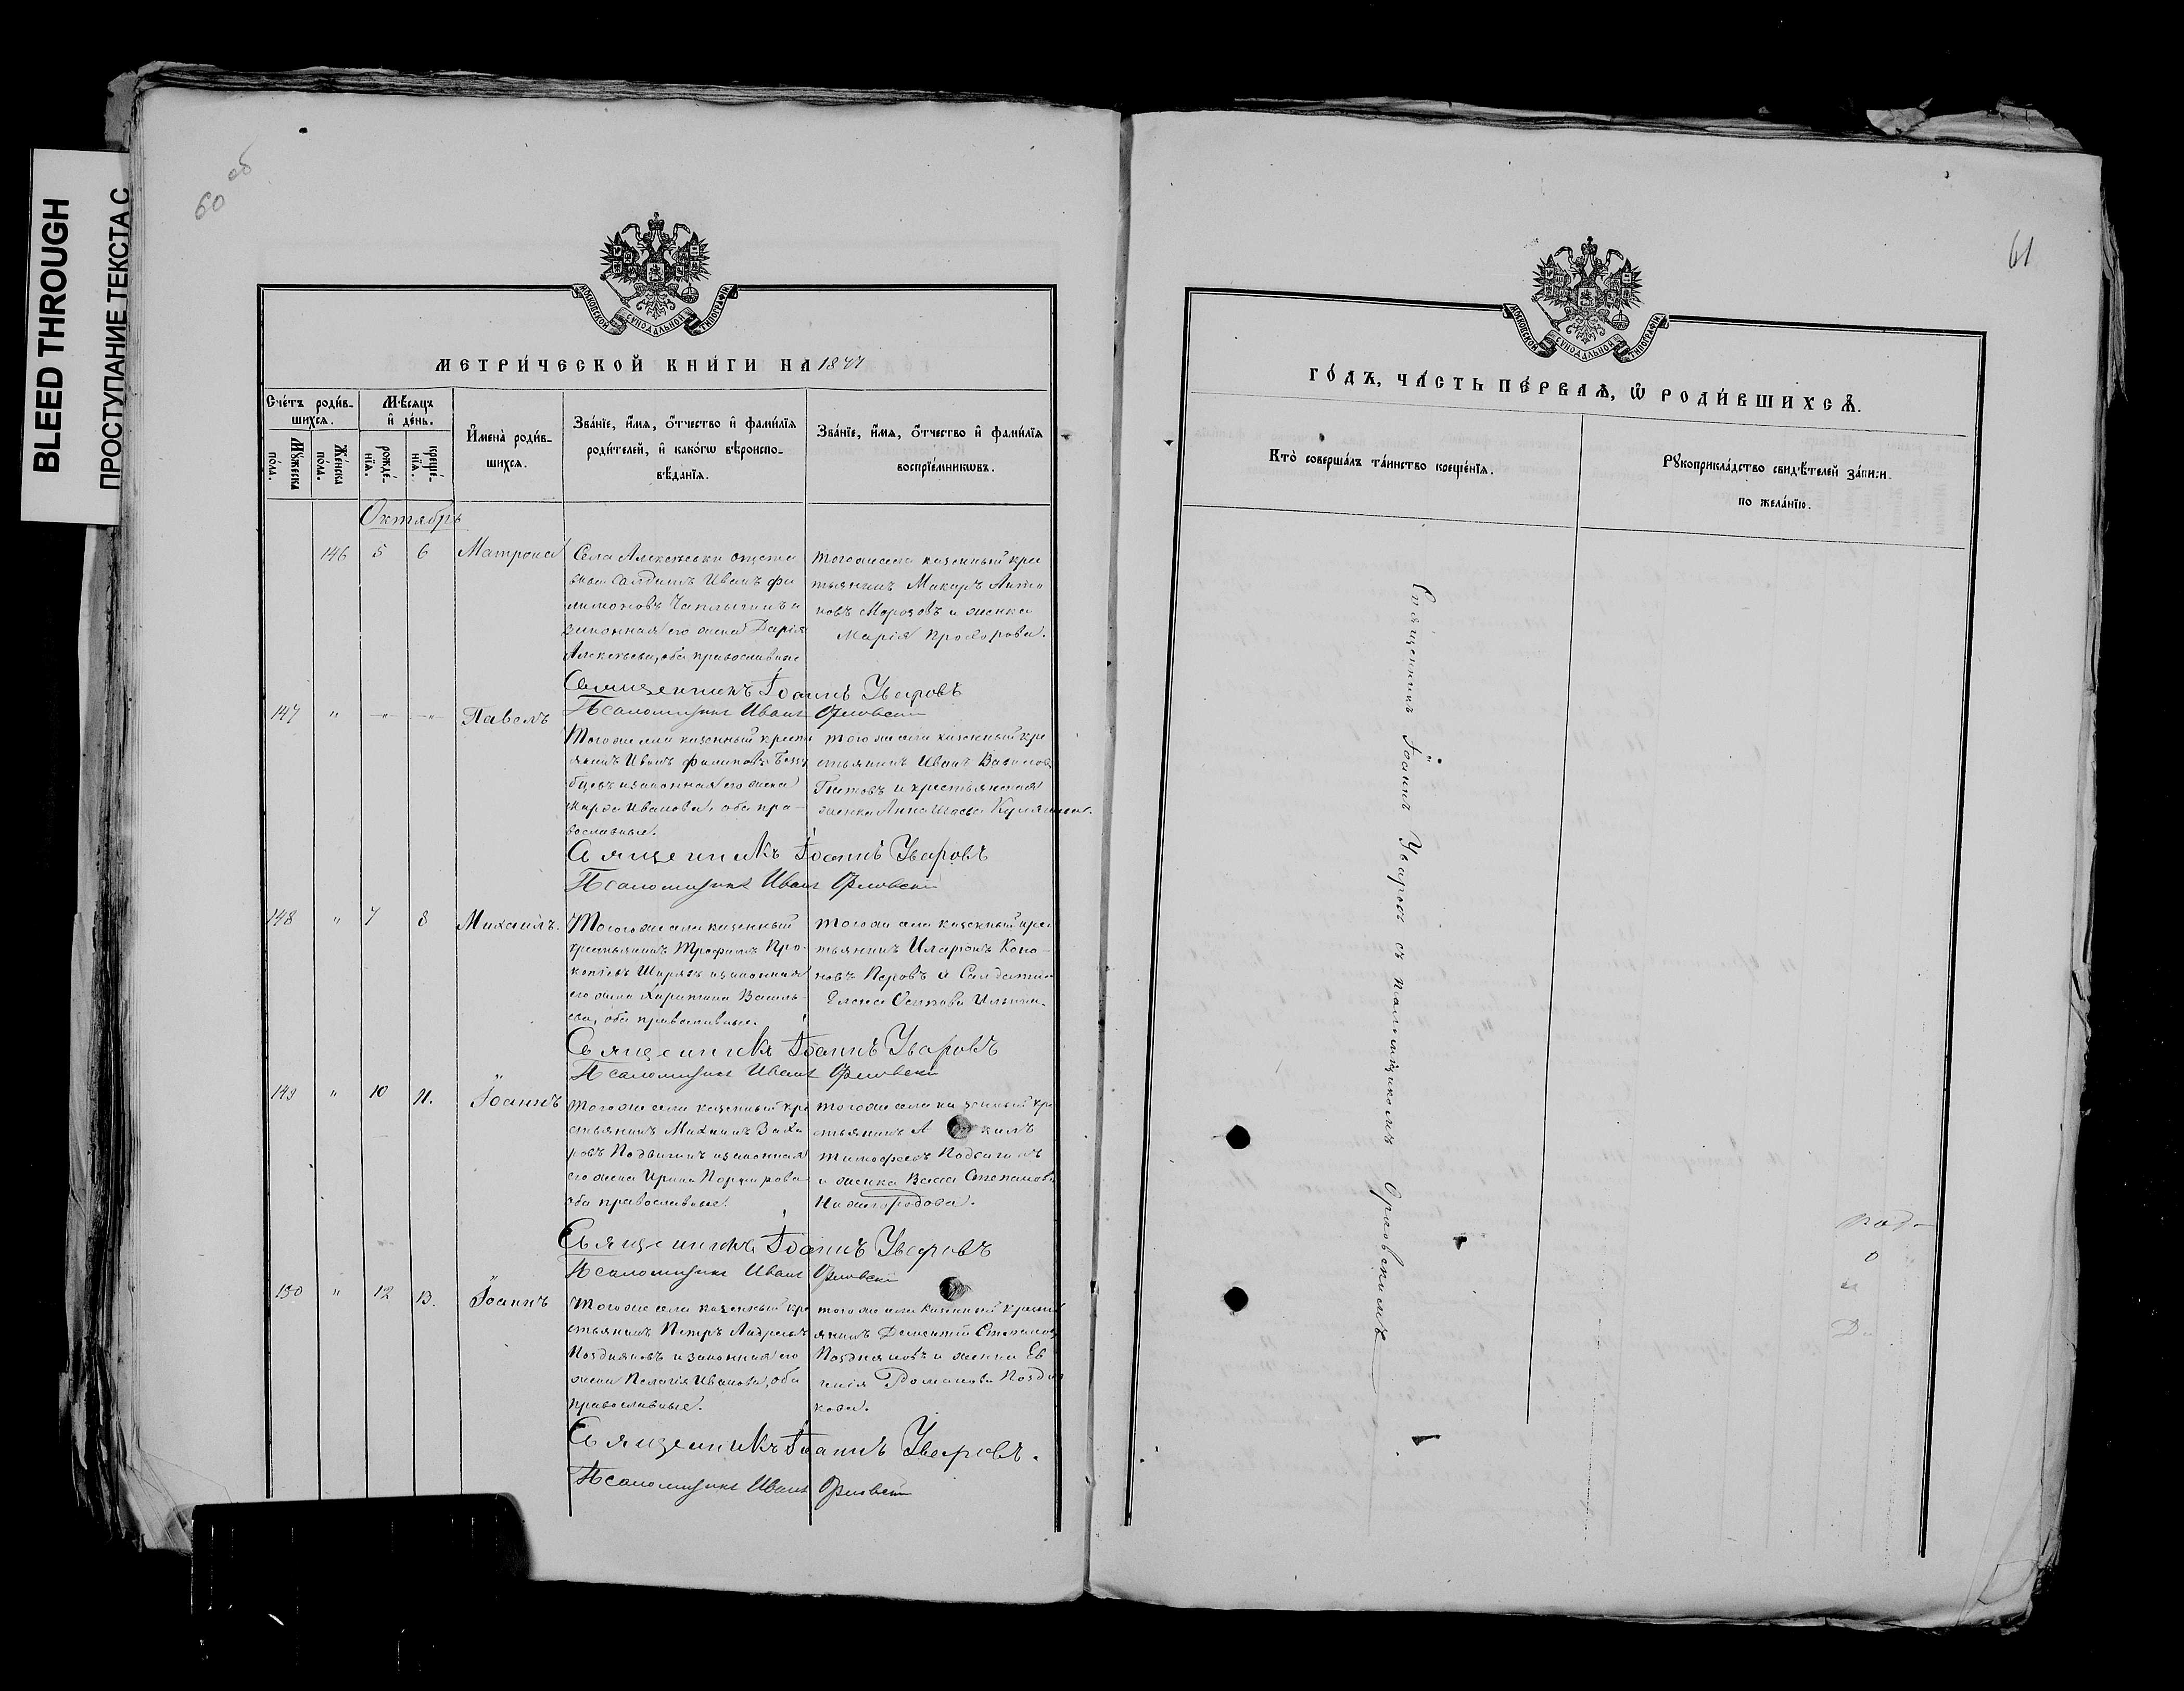 BLEED THROUGH
ПРОСТУПАНИЕ ТЕКСТА С
60 об
МОСКОВСКОЙ СѴНОДАЛЬНОЙ ТИПОГРАФІИ
МЕТРИ́ЧЕСКОЙ КНИ́ГИ НА 1877
Сче́тъ роди́в-
шихсѧ.
Мꙋ́жеска по́ла.
Же́нска по́ла.
Мѣ́сѧцъ и҆ де́нь.
рожде́-
нїѧ.
креще́-
нїѧ.
И҆мена̀ роди́в-
шихсѧ.
Зва́нїе, и҆́мѧ, ѻ҆́тчество и҆ фами́лїѧ
роди́телей, и҆ како́гѡ вѣроиспо-
вѣ́данїѧ.
Зва́нїе, и҆́мѧ, ѻ҆́тчество и҆ фами́лїѧ
воспрїе́мникѡвъ.
Октябрь
146 5 6 Матрона
Села Алексеевки
Иванъ Фи
лимоновъ Чаплыгинъ и
законная его жена Дарія
Алексѣева, оба православные
тогоже села казенный кре
тьянинъ Макаръ Анто
новъ Морозовъ и женка
Марія Прохорова.
Священникъ Іоаннъ Уваровъ
Псаломщикъ Иванъ Орловскій
147 " —"— —"— Павелъ
Тогоже села казенный крестья
янинъ Иванъ Филиповъ
и законная его жена
Марѳа Иванова, оба пра-
вославные.
того же села казенный кре
стьянинъ Иванъ
и крестьянская
женка Анна
Священникъ Іоаннъ Уваровъ
Псаломщикъ Иванъ Орловскій
148 " 7 8 Михаилъ.
Тогоже села казенный
крестьянинъ Трофимъ Про-
копіевъ и законная
его жена Харитина Василь-
ева, оба православные.
того же села казенный кре
тьянинъ Иларіонъ Коно-
новъ и Салдатка
Елена Осипова
Священникъ Іоаннъ Уваровъ
Псаломщикъ Иванъ Орловскій
149 " 10 11. Іоаннъ
того же села казенный кре
стьянинъ Михаилъ Заха
ровъ Подвигинъ и законная
его жена Ирина Порфирова
оба православные.
того же села казенный кре
стьянинъ
Тимофеевъ Подвигинъ
и женка Васса Степанова
Нижегородова.
Священникъ Іоаннъ Уваровъ
Псаломщикъ Иванъ Орловскій
150 " 12 13. Іоаннъ
Того же села казенный кре
стьянинъ Петръ Андреевъ
Поздняковъ и законная его
жена Пелагія Иванова, оба
православные.
того же села казенный крестья
янинъ Дементій Степановъ
Поздняковъ и женка Ев
Романова Поздня
кова.
Священникъ Іоаннъ Уваровъ.
Псаломщикъ Иванъ Орловскій
61
МОСКОВСКОЙ СѴНОДАЛЬНОЙ ТИПОГРАФІИ
ГО́ДЪ, ЧА́СТЬ ПЕ́РВАѦ, Ѡ҆ РОДИ́ВШИХСѦ.
Кто̀ соверша́лъ та́инство креще́нїѧ.
Рꙋкоприкла́дство свидѣ́телей за́писи
по жела́нїю.
Священникъ Іоаннъ Уваровъ съ псаломщикомъ Орловскимъ